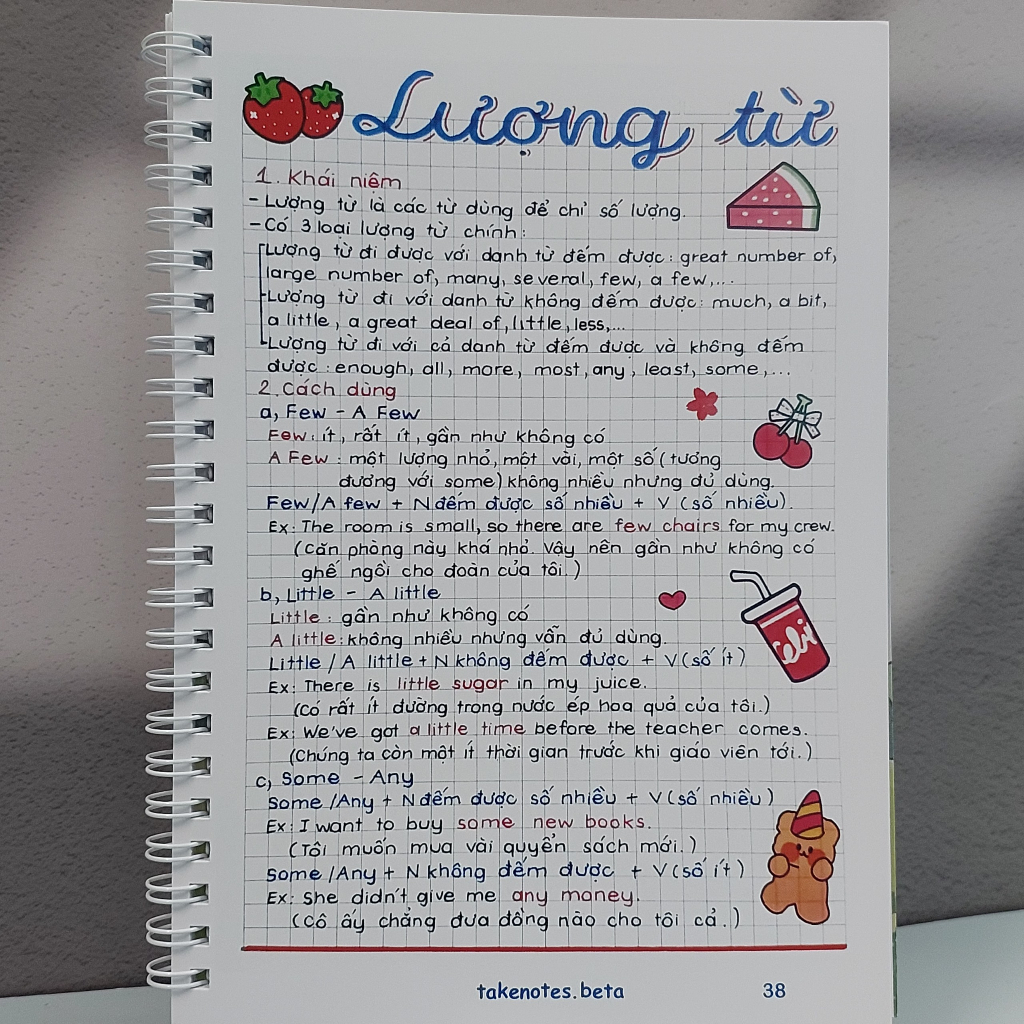 Lượng từ
1. Khái niệm
- Lượng từ là các từ dùng để chỉ số lượng.
- Có 3 loại lượng từ chính:
Lượng từ đi được với danh từ đếm được: great number of,
large number of, many, several, few, a few,...
Lượng từ đi với danh từ không đếm được: much, a bit,
a little, a great deal of, little, less,...
Lượng từ đi với cả danh từ đếm được và không đếm
được: enough, all, more, most, any, least, some,...
2. Cách dùng
a, Few - A Few
Few: ít, rất ít, gần như không có
A Few: một lượng nhỏ, một vài, một số (tương
đương với some) không nhiều nhưng đủ dùng.
Few/A few + N đếm được số nhiều + V (số nhiều).
Ex: The room is small, so there are few chairs for my crew.
(Căn phòng này khá nhỏ. Vậy nên gần như không có
ghế ngồi cho đoàn của tôi.)
b, Little - A little
Little: gần như không có
A little: không nhiều nhưng vẫn đủ dùng.
Little / A little + N không đếm được + V (số ít)
Ex: There is little sugar in my juice.
(Có rất ít đường trong nước ép hoa quả của tôi.)
Ex: We've got a little time before the teacher comes.
(Chúng ta còn một ít thời gian trước khi giáo viên tới.)
c, Some - Any
Some /Any + N đếm được số nhiều + V (số nhiều)
Ex: I want to buy some new books.
(Tôi muốn mua vài quyển sách mới.)
Some /Any + N không đếm được + V (số ít)
Ex: She didn't give me any money.
(Cô ấy chẳng đưa đồng nào cho tôi cả.)
takenotes.beta 38